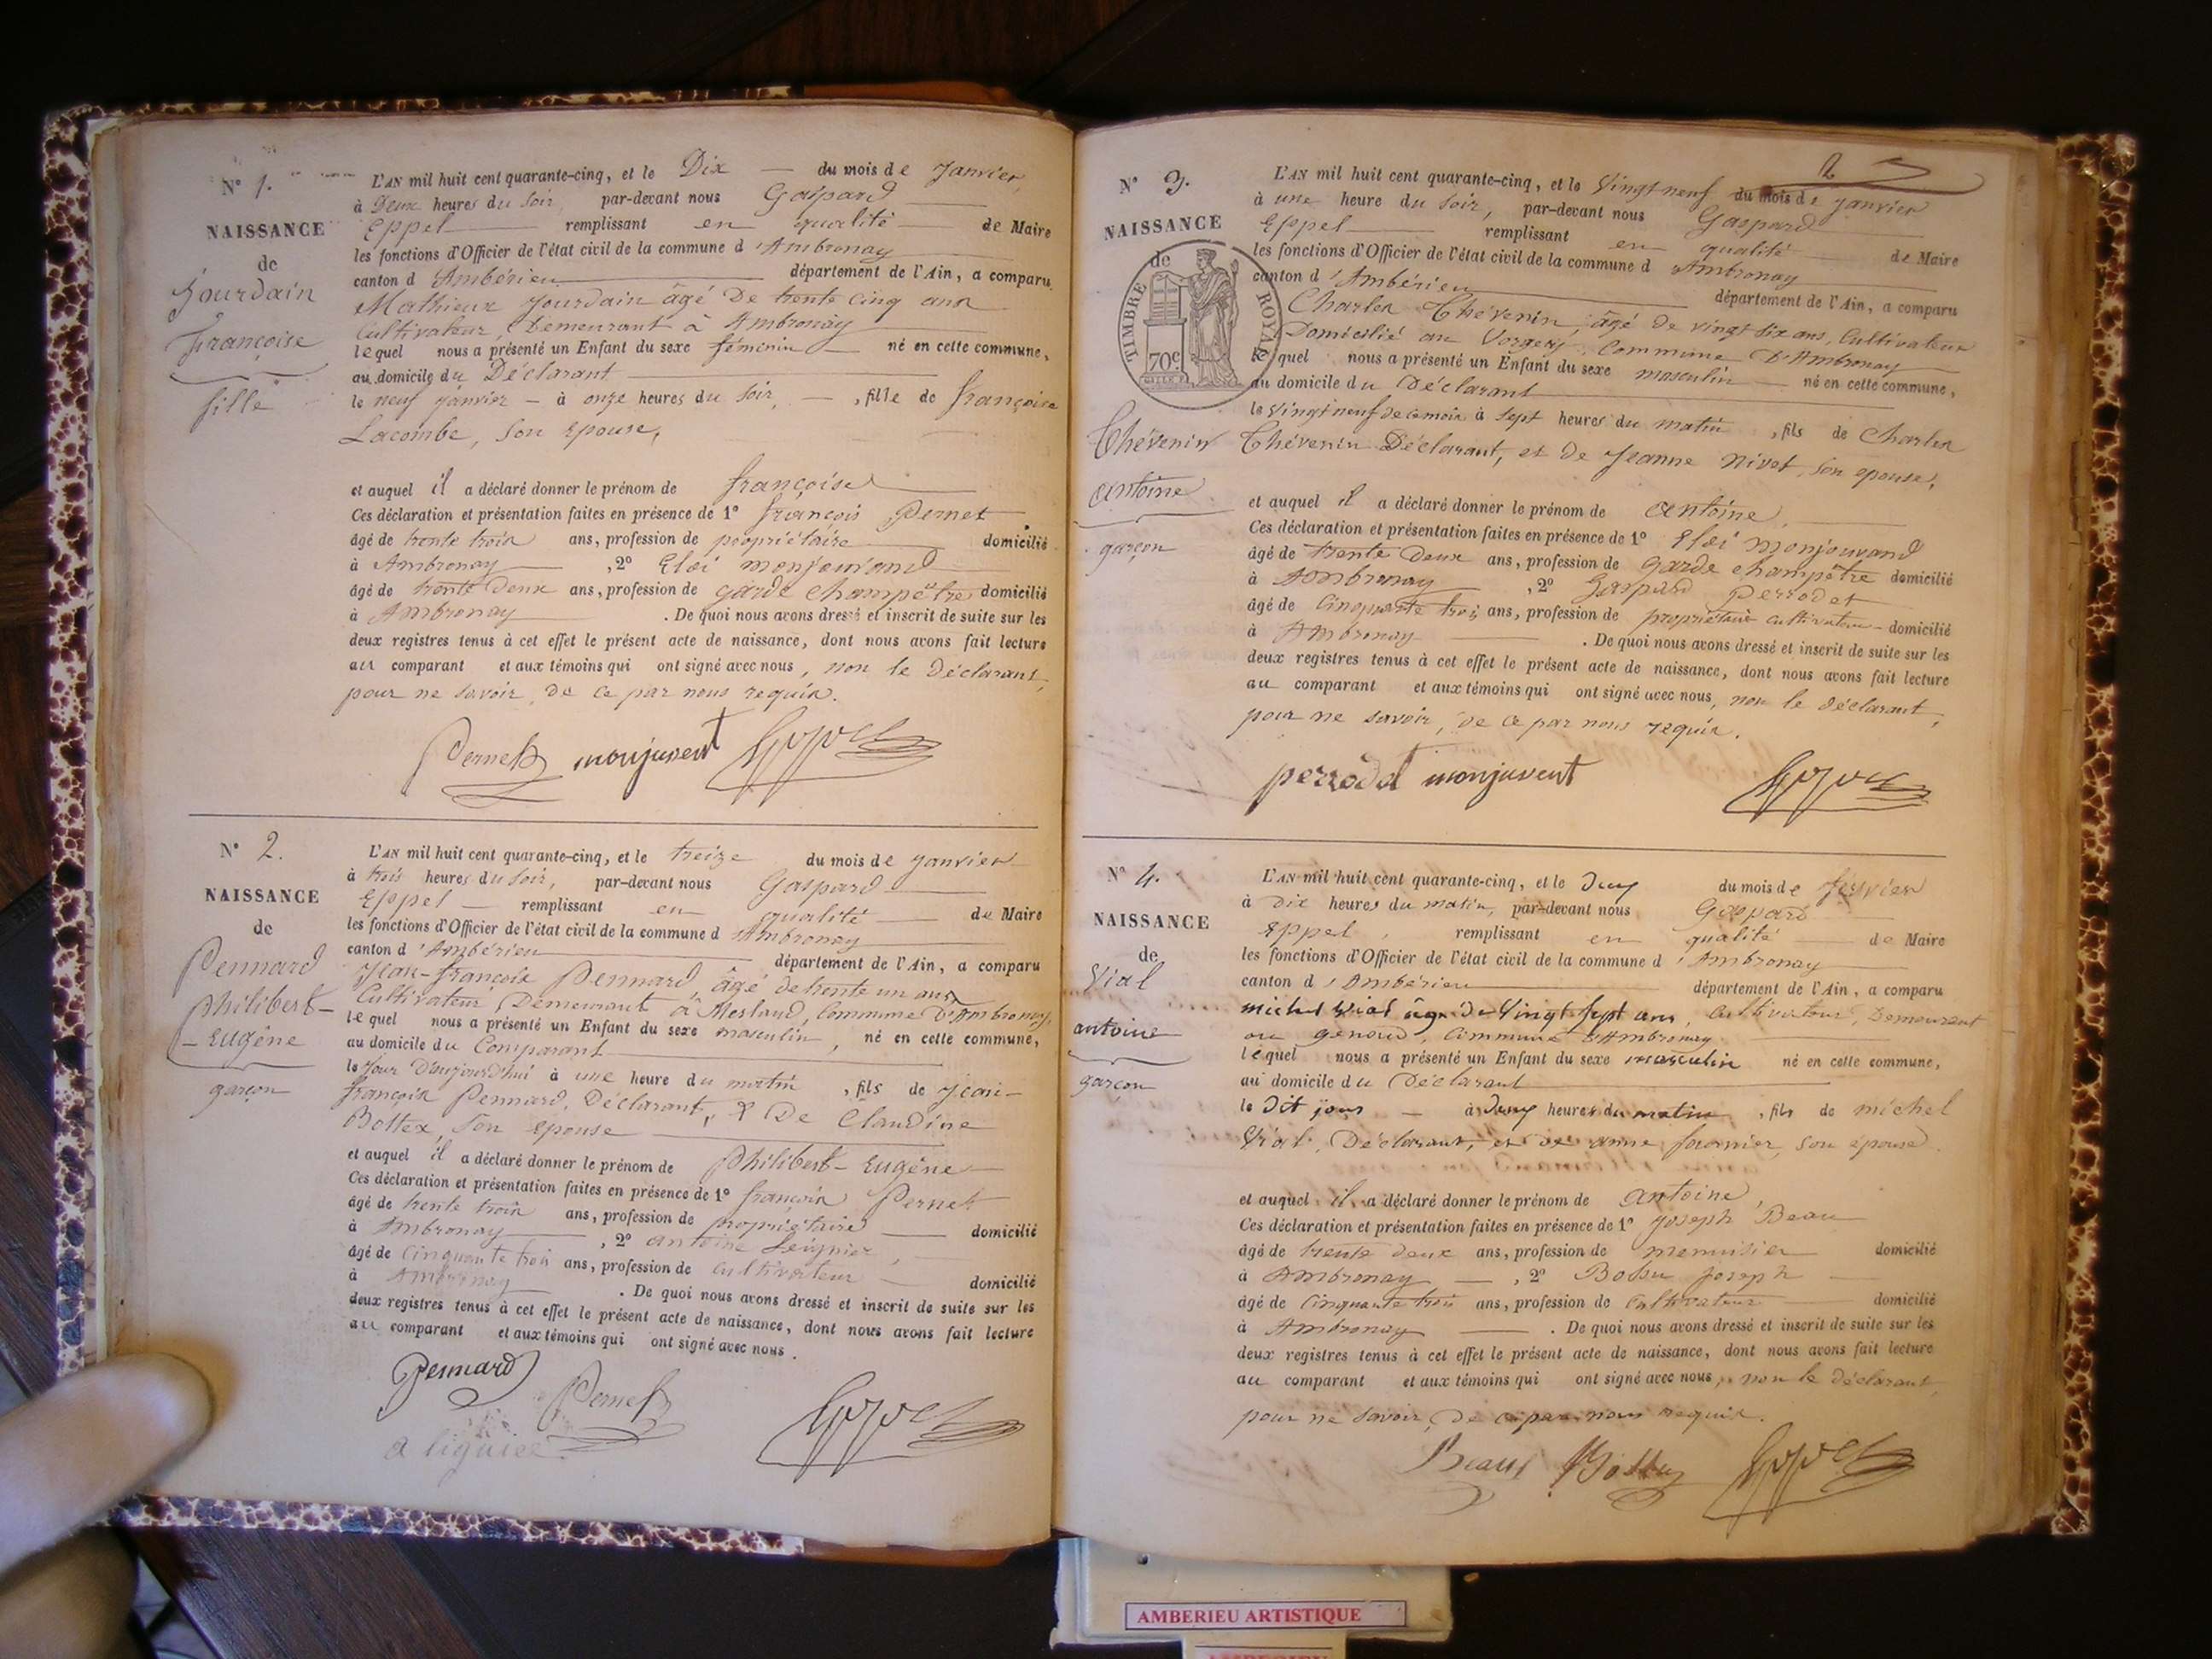 N° 1.
NAISSANCE
de
Jourdain
Françoise
fille
L'AN mil huit cent quarante-cinq, et le Dix — du mois de Janvier,
à Deux heures du Soir, par-devant nous Gaspard
Eppel remplissant en qualité de Maire
les fonctions d'Officier de l'état civil de la commune d'Ambronay
canton d'Ambérieu département de l'Ain, a comparu
Mathieux Jourdain âgé De trente cinq ans
Cultivateur, Demeurant à Ambronay
lequel nous a présenté un Enfant du sexe féminin né en cette commune,
au domicile du Déclarant
le neuf Janvier — à onze heures du Soir, — , fille de françoise
Lacombe, Son Epouse,
et auquel il a déclaré donner le prénom de françoise
Ces déclaration et présentation faites en présence de 1° françois Pernet
âgé de trente trois ans, profession de propriétaire domicilié
à Ambronay , 2° Eloi monjouvand
âgé de trente Deux ans, profession de garde Champêtre domicilié
à Ambronay . De quoi nous avons dressé et inscrit de suite sur les
deux registres tenus à cet effet le présent acte de naissance, dont nous avons fait lecture
au comparant et aux témoins qui ont signé avec nous, non le Déclarant,
pour ne Savoir, De ce par nous requis.
Pernet monjuvent
N° 2.
NAISSANCE
de
Pennard
Philibert-
- Eugêne
garçon
L'AN mil huit cent quarante-cinq, et le treize du mois de Janvier
à trois heures du Soir, par-devant nous Gaspard
Eppel — remplissant en qualité — de Maire
les fonctions d'Officier de l'état civil de la commune d'Ambronay
canton d'Ambérieu département de l'Ain, a comparu
Jean-françois Pennard, âgé de trente un ans
Cultivateur Demeurant à Mesland, Commune D'Ambronay,
lequel nous a présenté un Enfant du sexe masculin, né en cette commune,
au domicile du Comparant
le Jour D'aujourd'hui à une heure du matin , fils de Jean-
françois Pennard, Déclarant, & De Claudine
Bottex, Son epouse
et auquel il a déclaré donner le prénom de Philibert-Eugêne
Ces déclaration et présentation faites en présence de 1° françois Pernet
âgé de trente trois ans, profession de propriétaire domicilié
à Ambronay , 2° antoine
âgé de Cinquante trois ans, profession de Cultivateur domicilié
à Ambronay . De quoi nous avons dressé et inscrit de suite sur les
deux registres tenus à cet effet le présent acte de naissance, dont nous avons fait lecture
au comparant et aux témoins qui ont signé avec nous.
Pennard
Pernet
2
N° 3.
NAISSANCE
de
TIMBRE ROYAL
70c
Thévenin
antoine
garçon
L'AN mil huit cent quarante-cinq, et le Vingt neuf du mois de Janvier
à une heure du Soir, par-devant nous Gaspard
Eppel remplissant en qualité de Maire
les fonctions d'Officier de l'état civil de la commune d'Ambronay
canton d'Ambérieu département de l'Ain, a comparu
Charles Thévenin, âgé de vingt six ans, Cultivateur
Domicilié au Commune D'Ambronay
lequel nous a présenté un Enfant du sexe masculin né en cette commune,
au domicile du Déclarant
le Vingt neuf de ce mois à Sept heures du matin , fils de Charles
Thévenin Déclarant, et de Jeanne Nivet, Son epouse,
et auquel il a déclaré donner le prénom de antoine,
Ces déclaration et présentation faites en présence de 1° Eloi monjouvand
âgé de trente Deux ans, profession de garde champêtre domicilié
à Ambronay , 2° Gaspard perrodet
âgé de Cinquante trois ans, profession de propriétaire cultivateur domicilié
à Ambronay . De quoi nous avons dressé et inscrit de suite sur les
deux registres tenus à cet effet le présent acte de naissance, dont nous avons fait lecture
au comparant et aux témoins qui ont signé avec nous, non le déclarant,
pour ne savoir, de ce par nous requis.
perrodet monjuvent
N° 4.
NAISSANCE
de
Vial
antoine
garçon
L'AN mil huit cent quarante-cinq, et le Deux du mois de février
à Dix heures du matin, par-devant nous Gaspard
Eppel, remplissant en qualité de Maire
les fonctions d'Officier de l'état civil de la commune d'Ambronay
canton d'Ambérieu département de l'Ain, a comparu
michel Vial âgé De Vingt Sept ans, Cultivateur, Demeurant
au genoud, Commune D'Ambronay
lequel nous a présenté un Enfant du sexe masculin né en cette commune,
au domicile du Déclarant
le Dit jour — à Deux heures du matin , fils de michel
Vial, Déclarant, et de anne fournier, Son épouse.
et auquel il a déclaré donner le prénom de antoine,
Ces déclaration et présentation faites en présence de 1° Joseph Beau
âgé de trente deux ans, profession de menuisier domicilié
à Ambronay , 2° Bossu Joseph
âgé de Cinquante trois ans, profession de Cultivateur domicilié
à Ambronay . De quoi nous avons dressé et inscrit de suite sur les
deux registres tenus à cet effet le présent acte de naissance, dont nous avons fait lecture
au comparant et aux témoins qui ont signé avec nous, non le déclarant,
pour ne Savoir, De ce par nous requis.
Beau Bossu
AMBERIEU ARTISTIQUE